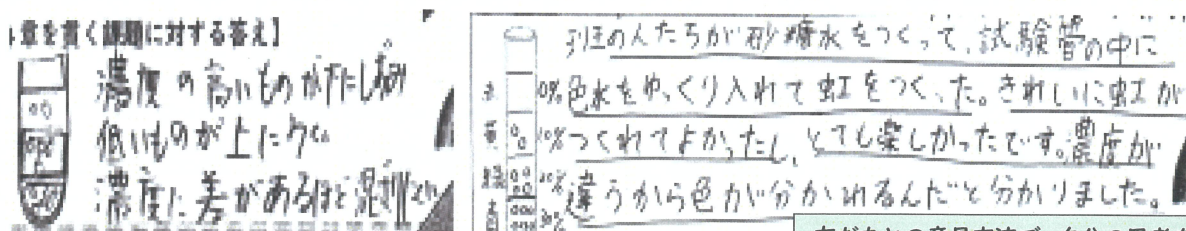 章を貫く課題に対する答え】
濃度の高いものが下に
低いものが上に
濃度に差があるほど
班の人たちが砂糖水をつくって、試験管の中に
赤 0% 色水をゆっくり入れて虹をつくった。きれいに虹が
黄 10% つくれてよかったし、とても楽しかったです。濃度が
緑 20% 違うから色が分かれるんだと分かりました。
青 30%